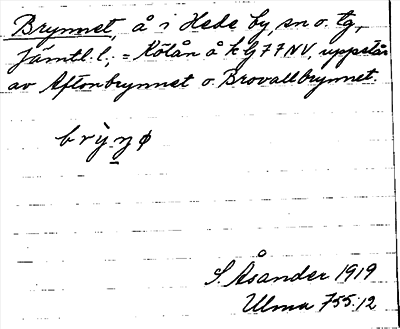 Brynnet, å i Hede by, sn o. tg,
Jämtl. l., = Kölån å k bl 77 NV, uppstår
av Aftonbrynnet o. Brovallbrynnet.
brỳn̠ø
S. Åsander 1919
Ulma 755:12